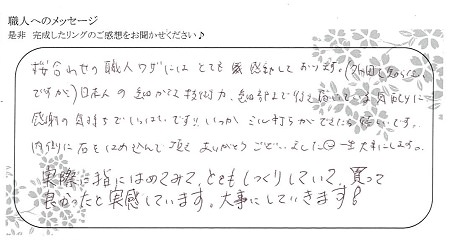 職人へのメッセージ
是非 完成したリングのご感想をお聞かせください♪
接合わせの職人ワザには とても 感動しております。
ですが)日本人の細かさと技術力、細部まで行き届いている気配りに
感謝の気持ちでいっぱいです!! いつか ミル打ちができたら嬉しいです。
内側に石をはめ込んで頂き ありがとうございました 一生大事にします。
実際に指にはめてみて、とてもしっくりしていて、買って
良かったと実感しています。大事にしていきます!